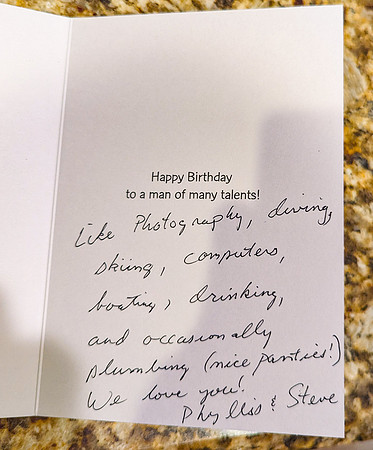 Happy Birthday
to a man of many talents!
Like Photography, diving,
skiing, computers,
boating, drinking,
and occasionally
plumbing (nice panties!)
We love you!
Phyllis & Steve